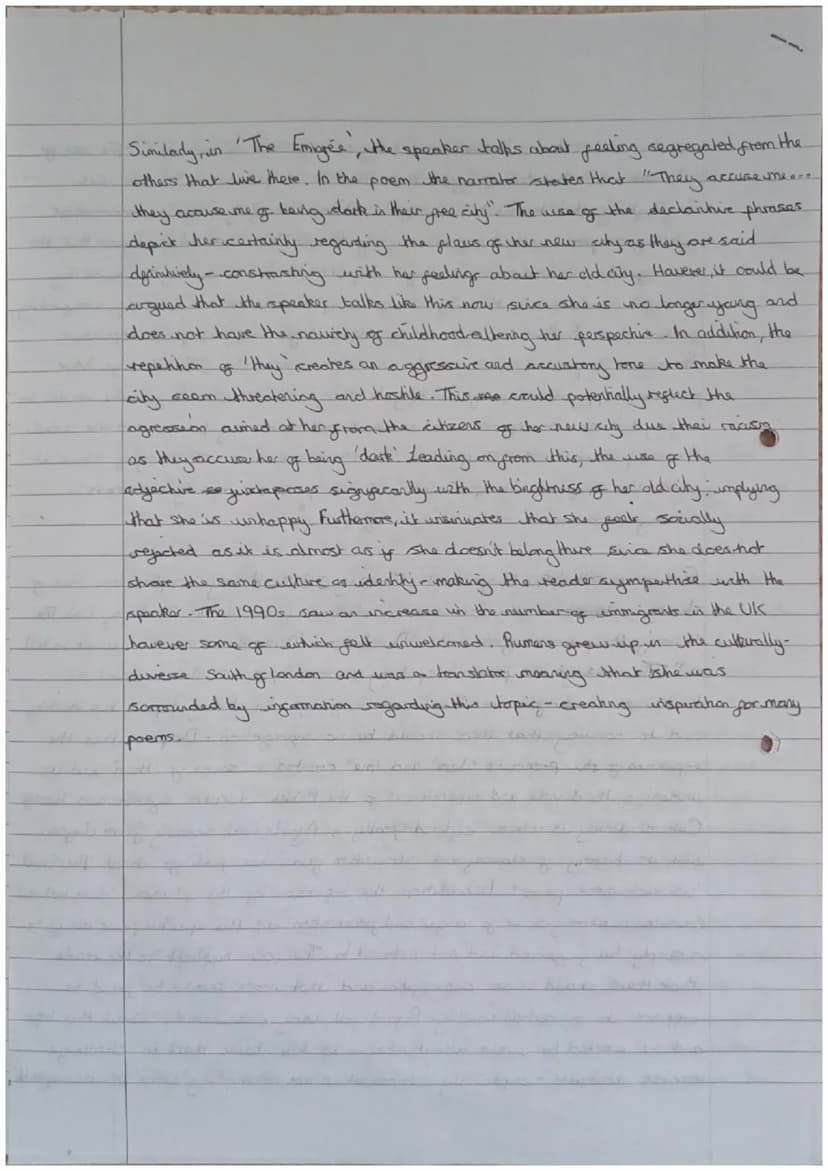 Similarly, in 'The Emigrée', the speaker talks about feeling segregated from the
others that live there. In the poem the narrator states that "They accuse me...
they accuse me of being dark in their free city". The use of the declaritive phrases
depict her certainty regarding the flaws of her new city as they are said
definitively - constrasting with her feelings about her old city. However, it could be
argued that the speaker talks like this now since she is no longer young and
does not have the naivity of childhood altering her perspective. In addition, the
repetition of 'they' creates an aggressive and accusatory tone to make the
city seem threatening and hostile. This could potentially reflect the
agression aimed at her from the citizens of her new city due their racism
as they accuse her of being 'dark'. Leading on from this, the use of the
adjective juxtaposes significantly with the brightness of her old city, implying
that she is unhappy. Furthermore, it insinuates that she feels socially
rejected as it is almost as if she doesn't belong there since she does not
share the same culture or identity - making the reader sympathise with the
speaker. The 1990s saw an increase in the number of immigrants in the UK
however some of which felt unwelcomed. Rumens grew up in the culturally-
diverse South of London and was a translator meaning that she was
sorrounded by information regarding this topic - creating inspiration for many
poems.